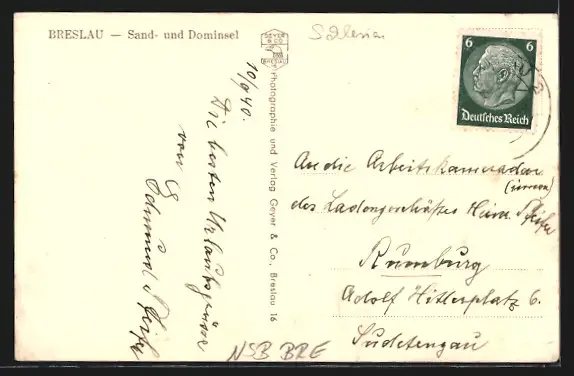 BRESLAU — Sand- und Dominsel
Silesien
GEYER
& CO
BRESLAU
10/9 40.
Die besten Urlaubsgrüsse
von
Edmund Pfeifer
Photographie und Verlag Geyer & Co., Breslau 16
6 6
Deutsches Reich
An die Arbeitskameraden
(innen)
des Ladengeschäftes Herm. Pfeifer
Rumburg
Adolf Hitlerplatz 6.
Sudetengau
NSB BRE